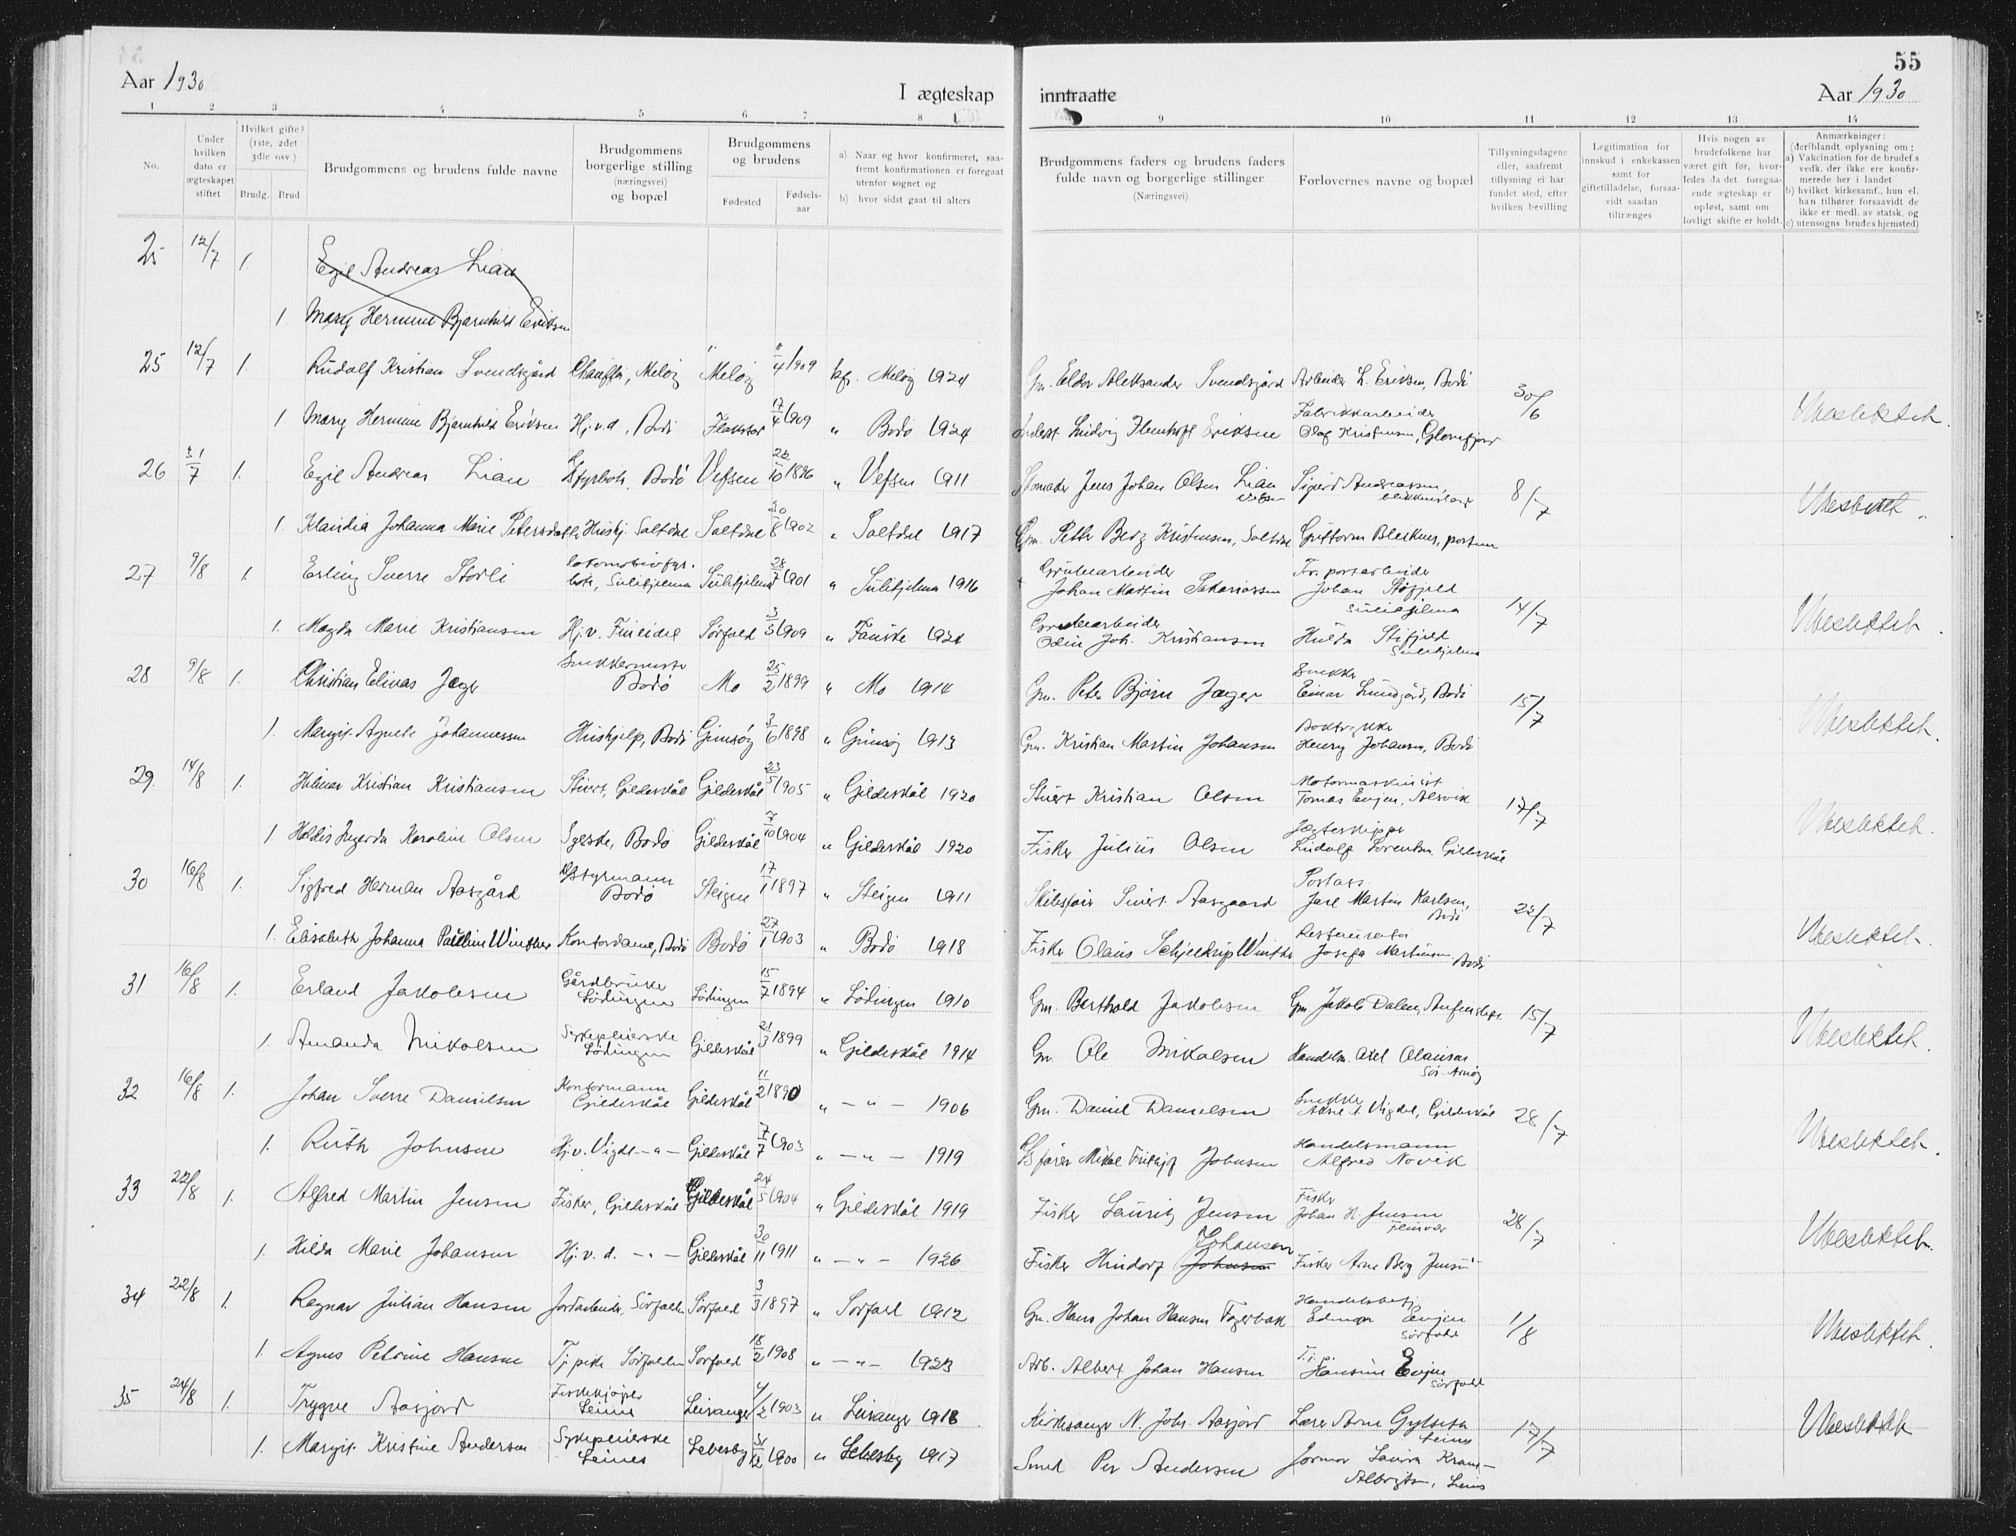 Aar 1930
I ægteskap
inntraatte
Aar 1930
55
1 2 3 4 5 6 7 8 9 10 11 12 13 14
No.
Under hvilken dato er ægteskapet stiftet
Hvilket gifte? (1ste, 2det 3die osv.)
Brudg. Brud
Brudgommens og brudens fulde navne
Brudgommens borgerlige stilling (næringsvei) og bopæl
Brudgommens og brudens
Fødested
Fødsels-aar
a) Naar og hvor konfirmeret, saafremt konfirmationen er foregaat utenfor sognet og
b) hvor sidst gaat til alters
Brudgommens faders og brudens faders fulde navn og borgerlige stillinger
(Næringsvei)
Forlovernes navne og bopæl
Tillysningsdagene eller, saafremt tillysning ei har fundet sted, efter hvilken bevilling
Legitimation for innskud i enkekassen samt for giftetilladelse, forsaavidt saadan tiltrænges
Hvis nogen av brudefolkene har været gift før, hvorledes da det foregaaende ægteskap er opløst, samt om lovligt skifte er holdt.
Anmærkninger: (deriblandt oplysning om: a) Vakcination før de brudef.s vedk. der ikke ere konfirmerede her i landet b) hvilket kirkesamf., hun el. han tilhører forsaavidt de ikke er medl. av statsk. og c) utensogns brudes hjemsted)
25 12/7 1. Egil Andreas Lian
1 Mary Hermine Bjarnhild Eriksen
25 12/7 1. Rudolf Kristian Svendsgård Chauffør, Meløy Meløy 11/4 1909 kf. Meløy 1924 Gm. Elder Aleksander Svendsgård Arbeider L. Eriksen, Bodø 30/6
1 Mary Hermine Bjarnhild Eriksen Hj.v.d., Bodø 17/4 1909 " Bodø 1924 Ludvig Eriksen Fabrikkarbeider Olaf Kristensen, Glomfjord Ubeslektet.
26 31/7 1. Egil Andreas Lian Styrbots. Bodø Vefsen 22/10 1896 " Vefsen 1911 Skomaker Jens Johan Olsen Lian Vefsen Sigurd Andreassen, 8/7
1. Klaudia Johanna Marie Petersdatter Hushj. Saltdal Saltdal 30/8 1902 " Saltdal 1917 Gm. Peter Berg Kristensen, Saltdal Guttorm Bleiknes, Ubeslektet.
27 9/8 1. Erling Sverre Storli lokomotivfyrbøter, Sulitjelma Sulitjelma 28/7 1901 " Sulitjelma 1916 Grubearbeider Johan Martin Sakariassen Johan Støfjeld Sulitjelma 14/7
1. Magda Marie Kristiansen Hj.v. Fineidet Sørfold 3/3 1909 " Fauske 1924 Grubearbeider Odin Joh. Kristiansen Hulda Sulitjelma Ubeslektet.
28 9/8 1. Christian Elinas Jæger Snekkermester Bodø Mo 25/2 1899 " Mo 1914 Gm. Peter Bjørn Jæger Snekker Einar Lundgård, Bodø 15/7
1. Margit Agnete Johannessen Hushjelp, Bodø Gimsøy 3/6 1898 " Gimsøy 1913 Gm. Kristian Martin Johansen Boktrykker Henry Johansen, Bodø Ubeslektet.
29. 14/8 1. Hilmar Kristian Kristiansen Stuert, Gildeskål Gildeskål 23/5 1905 " Gildeskål 1920 Stuert Kristian Olsen Motormaskinist Tomas Evjen, Alsvik 17/7
1. Haldis Ingerda Karoline Olsen Syerske, Bodø Gildeskål 7/10 1904 " Gildeskål 1920 Fisker Julius Olsen Jægteskipper Ludolf Sørensen, Gildeskål Ubeslektet.
30 16/8 1. Sigfred Herman Aasgård Styrmann Bodø Steigen 17/1 1897 " Steigen 1911 Skibsfører Sivert Aasgaard Postass. Jarl Martin Karlsen, Bodø 22/7
1. Elisabeth Johanna Pauline Winther Kontordame, Bodø Bodø 27/1 1903 " Bodø 1918 Fisker Olaus Schjelderup Winther Josefa Martinsen Bodø Ubeslektet.
31 16/8 1. Erland Jakobsen Gårdbruker Lødingen Lødingen 15/7 1894 " Lødingen 1910 Gm. Berthold Jakobsen Gm. Jakob Dalen, 15/7
1. Amanda Mikalsen Sykepleierske Lødingen Gildeskål 21/3 1899 " Gildeskål 1914 Gm. Ole Mikalsen Handelsm. Axel Olausen Sør-Arnøy Ubeslektet.
32 16/8 1. Johan Sverre Danielsen Kontormann Gildeskål Gildeskål 11/2 1890 " - " - 1906 Gm. Daniel Danielsen Snekker Vigdel, Gildeskål 28/7
1. Ruth Johnsen Hj.v. Vigdel - " - Gildeskål 7/7 1903 " - " - 1919 Mikal Fritjof Johnsen Handelsmann Alfred Novik Ubeslektet.
33 22/8 1. Alfred Martin Jensen Fisker, Gildeskål Gildeskål 24/5 1904 " Gildeskål 1919 Fisker Lauritz Jensen Fisker Johan H. Jensen Fleinvær 28/7
1. Hilda Marie Johansen Hj.v.d. - " - Gildeskål 30/11 1911 " - " - 1926 Fisker Hindorf Johnsen Johansen Fisker Arne Berg Jensen Ubeslektet.
34 22/8 1. Ragnar Julian Hansen Jordarbeider, Sørfolden Sørfold 3/3 1897 " Sørfold 1912 Gm. Hans Johan Hansen Fagerbak Handelsbetj. Edmar Evjen Sørfold 1/8
1. Agnes Petrine Hansen Tj.pike Sørfolden Sørfold 18/2 1908 " - " - 1923 Arb. Albert Johan Hansen T.j.p. Hansine Evjen Sørfold Ubeslektet.
35 24/8 1. Trygve Aasjord Fiskekjøper Leines Leiranger 4/2 1903 " Leiranger 1918 Kirkesanger N. Johs. Aasjord Lærer Arne Gylseth Leines 17/7
1. Margit Kristine Andersen Sykepleierske Leines Lebesby 31/12 1900 " Lebesby 1917 Smed Per Andersen Jormor Laura Krane-Albrigtsen, Leines Ubeslektet